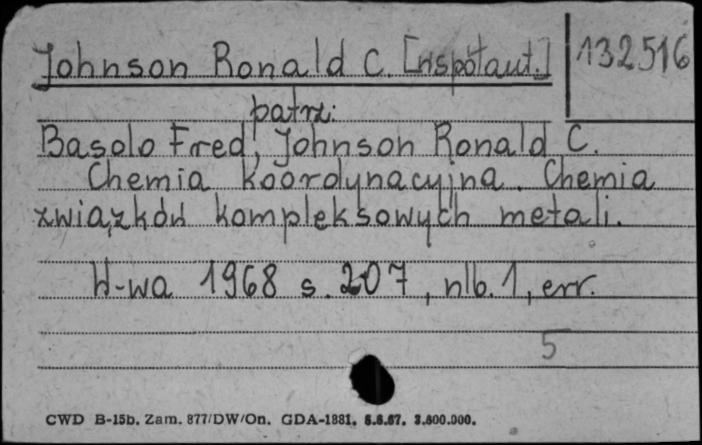 Johnson Ronald C. [współaut.] 132516
patrz:
Basolo Fred, Johnson Ronald C.
Chemia koordynacyjna. Chemia
związków kompleksowych metali.
W-wa 1968 s. 207, nlb. 1, err.
5
CWD B-15b. Zam. 877/DW/On. GDA-1881. 6.6.67. 3.800.000.